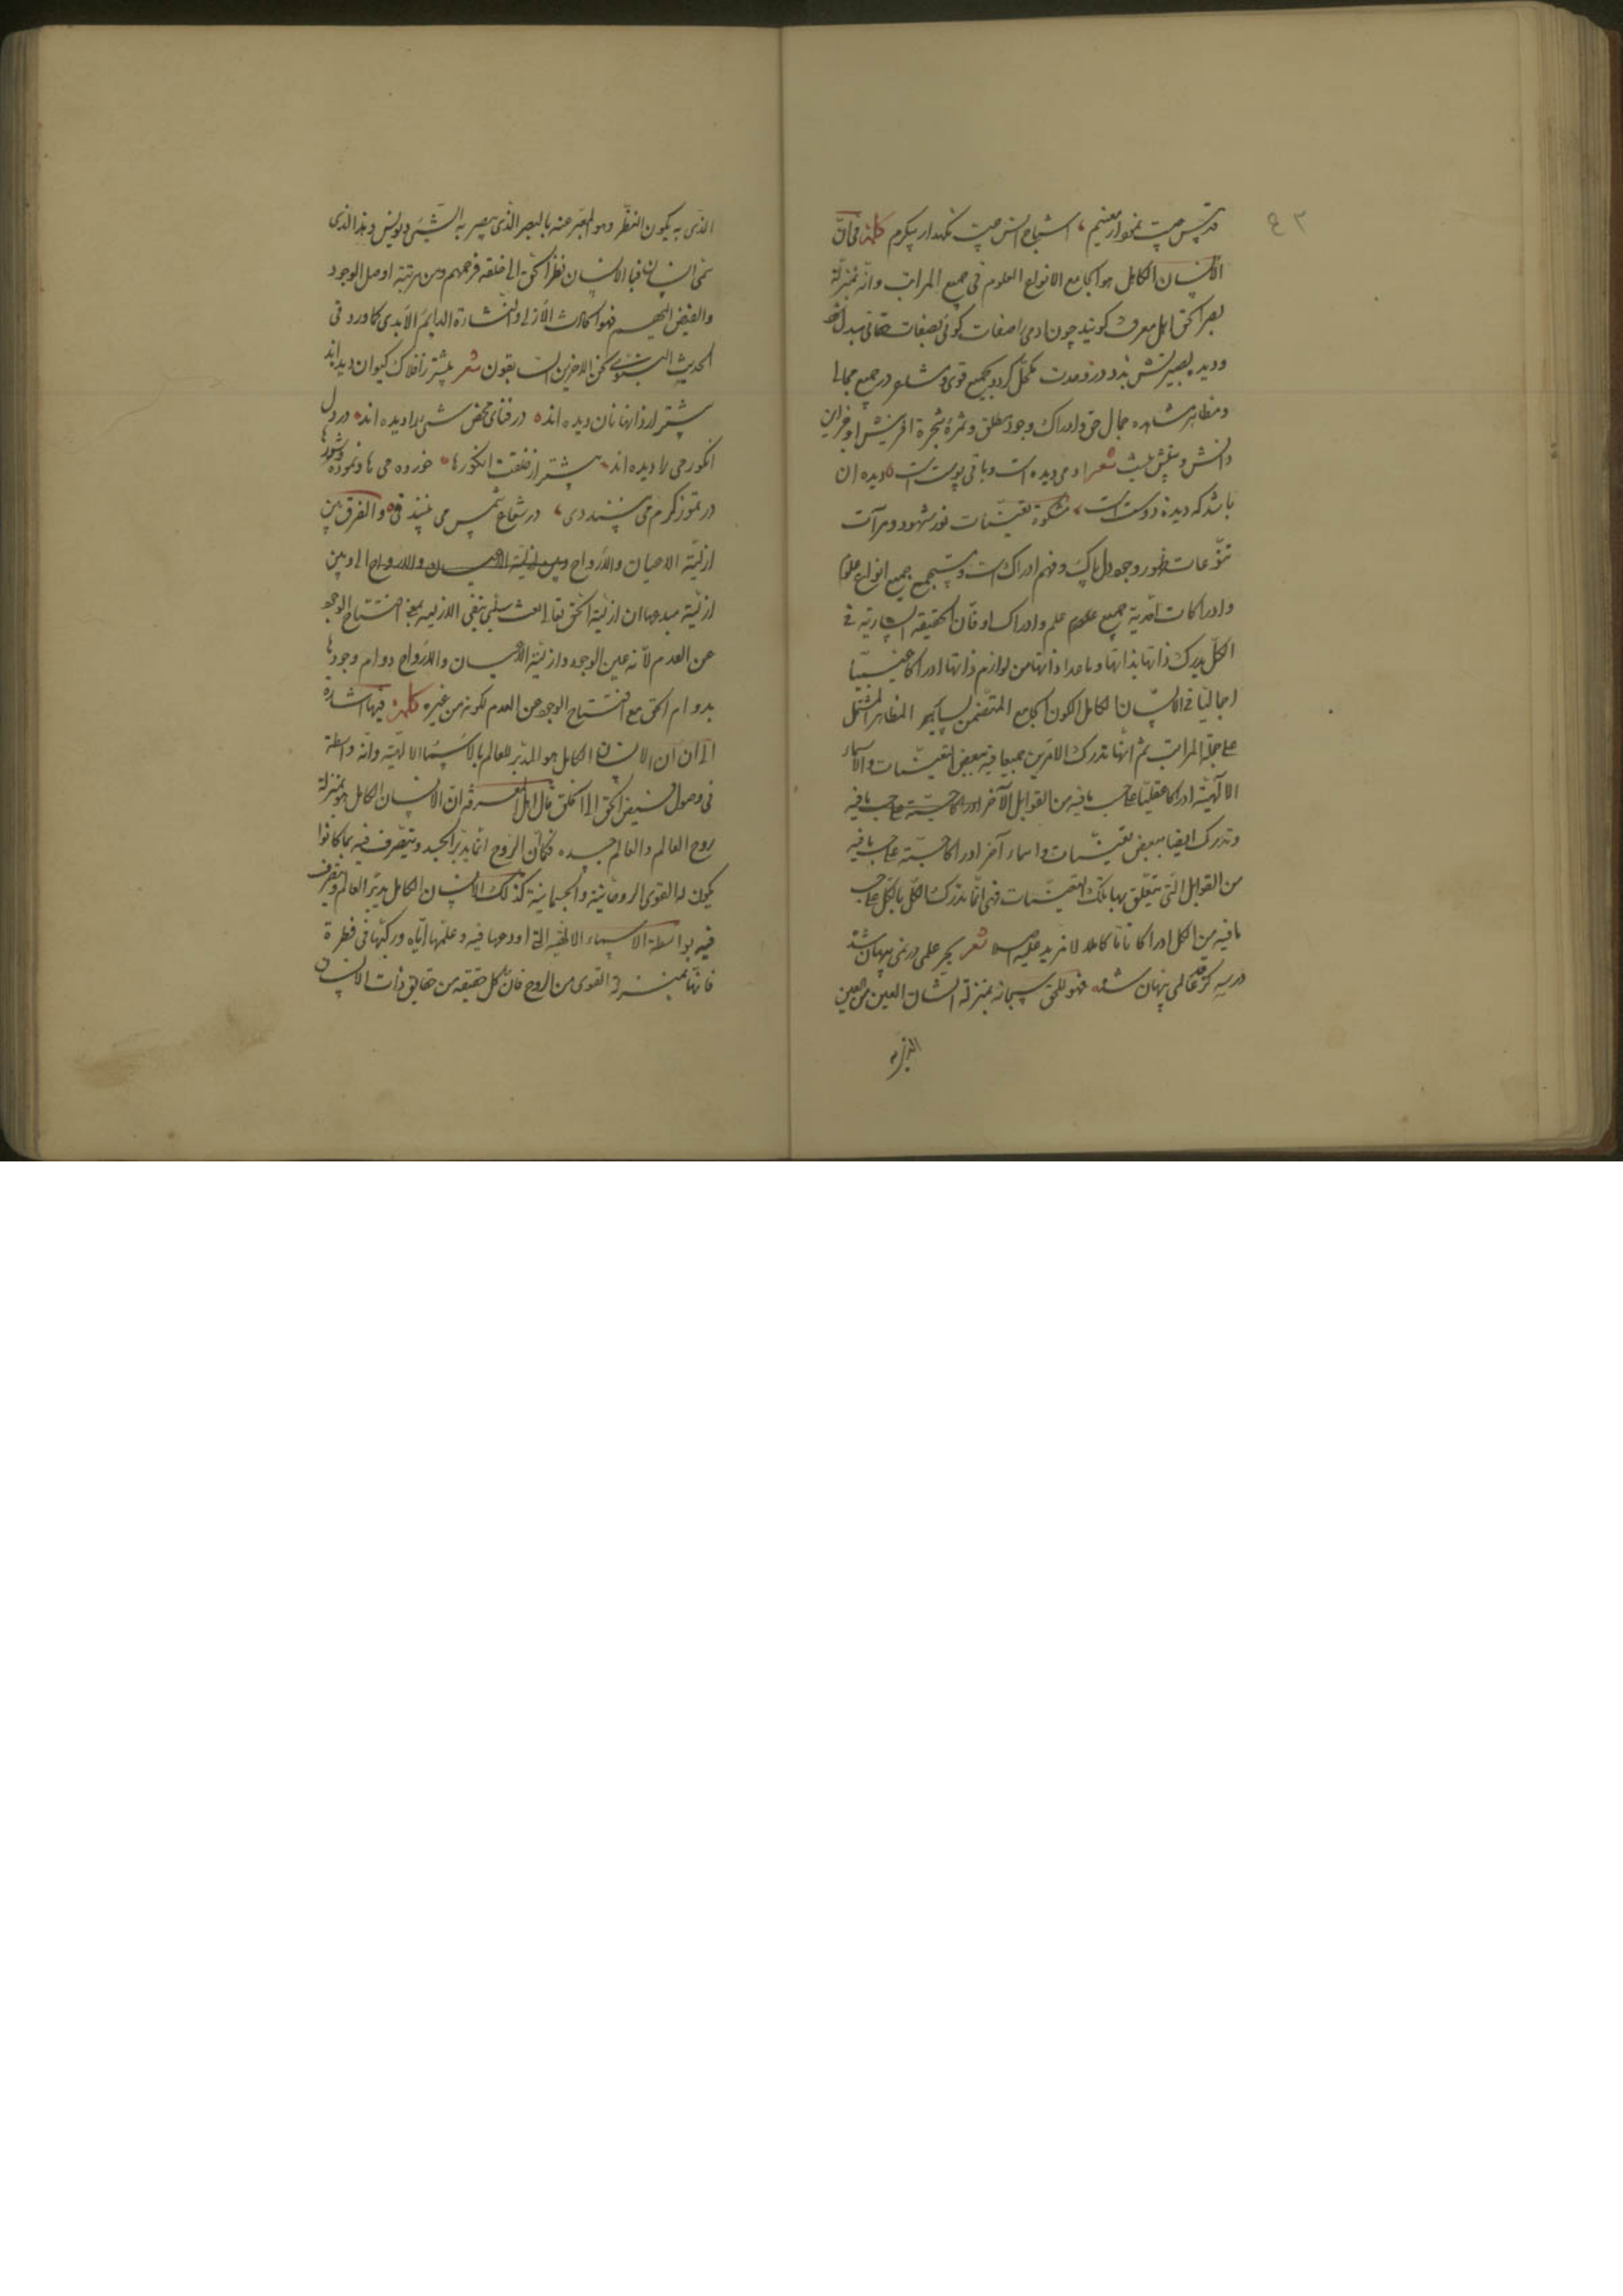 ٤٣
قدسش چیست نمخوار معنیم، اشباح انس چیست نکهدار پیکرم کلمه فی ان
الانسان الکامل هو الجامع الانواع العلوم فی جمیع المراتب وانه بمنزلة
بصر الحق اهل معرفت کویند چون ادمی را صفات کونی بصفات حقانی مبدل شود
ودیده بصیرتش بذرور وحدت مکحل کردد بجمیع قوی ومشاعر در جمیع مجالی
ومظاهر مشاهده جمال حق وادراک وجود مطلق وثمرهٔ شجرهٔ افرینش او خزاین
دانش وبینش است شعر ادمی دیده است وباقی پوست است دیده ان
باشد که دیدهٔ دوست است، مشکوة تعینات نور شهود ومرآت
تنوعات ظهور وجود دل پاک وفهم ادراک است ومستجمع جمیع انواع علوم
وادراکات قدریه جمیع علوم علم وادراک او فان الحقیقه الساریة فی
الکل یدرک ذاتها بذاتها وماعدا ذاتها من لوازم ذاتها ادراکا غیبیا
اجمالیا فی الانسان الکامل الکون الجامع المتضمن لسایر المظاهر المشتمل
علی جملة المراتب ثم انها تدرک الامرین جمیعا فیه ببعض التعینات والاسماء
الالهیة ادراکا عقلیا علی حسب ما فیه من القوابل الآخر ادراکا حسیة علی حسب ما فیه
وتدرک ایضا ببعض تعینات واسماء آخر ادراکا حسیة علی حسب ما فیه
من القوابل التی یتعلق بها تلک التعینات فهی انما تدرک الکل بالکل علی حسب
ما فیه من الکل ادراکا تاما کاملا لا مزید علیه اصلا شعر بحر علمی در نمی پنهان شده
در سه کز عالمی پنهان شده فهو للحق سبحانه بمنزلة انسان العین من العین
الذی به
الذی به یکون النظر وهو المعبر عنه بالبصر الذی یبصر به الشیئ ویونس وبذا الذی
سمی انسانا فبالانسان نظر الحق الی خلقه فرحمهم ومن مرتبته اوصل الوجود
والفیض الیهم فهو الحادث الازلی والنشاءة الدایم الابدی کما ورد فی
الحدیث النبوی نحن الاخرون السابقون شعر پیشتر ز افلاک کیوان دیده اند
پیشتر از دانها نان دیده اند در فنای محض شی را دیده اند در دل
انکور می را دیده اند پیشتر از خلقت انکورها خورده می ها ونموده شورها
در تموز کرم می بینند دی، در شعاع شمس می بینند فی والفرق بین
ازلیة الاعیان والارواح وبین ازلیة الاعیان والارواح الی وبین
ازلیة مبدعها ان ازلیة الحق تعالی نعت سلبی ینفی الازلیه بمعنی افتتاح الوجود
عن العدم لانه عین الوجود وازلیة الاعیان والارواح دوام وجودها
بدوام الحق مع افتتاح الوجود عن العدم لکونه من غیره کلمه فیها اشارة
الی ان الانسان الکامل هو المدبر للعالم بالاسماء الالهیة وانه واسطة
فی وصول فیض الحق الی الخلق قال اهل المعرفة ان الانسان الکامل هو بمنزلة
روح العالم والعالم جسده فکما ان الروح انما یدبر الجسد ویتصرف فیه بما کانوا
یکون له القوی الروحانیة والجسمانیة کذلک الانسان الکامل یدبر العالم ویتصرف
فیه بواسطة الاسماء الالهیة التی اودعها فیه وعلمها ایاه ورکبها فی فطرة
فانها بمنزلة القوی من الروح فان کل حقیقه من حقایق ذات الانسان